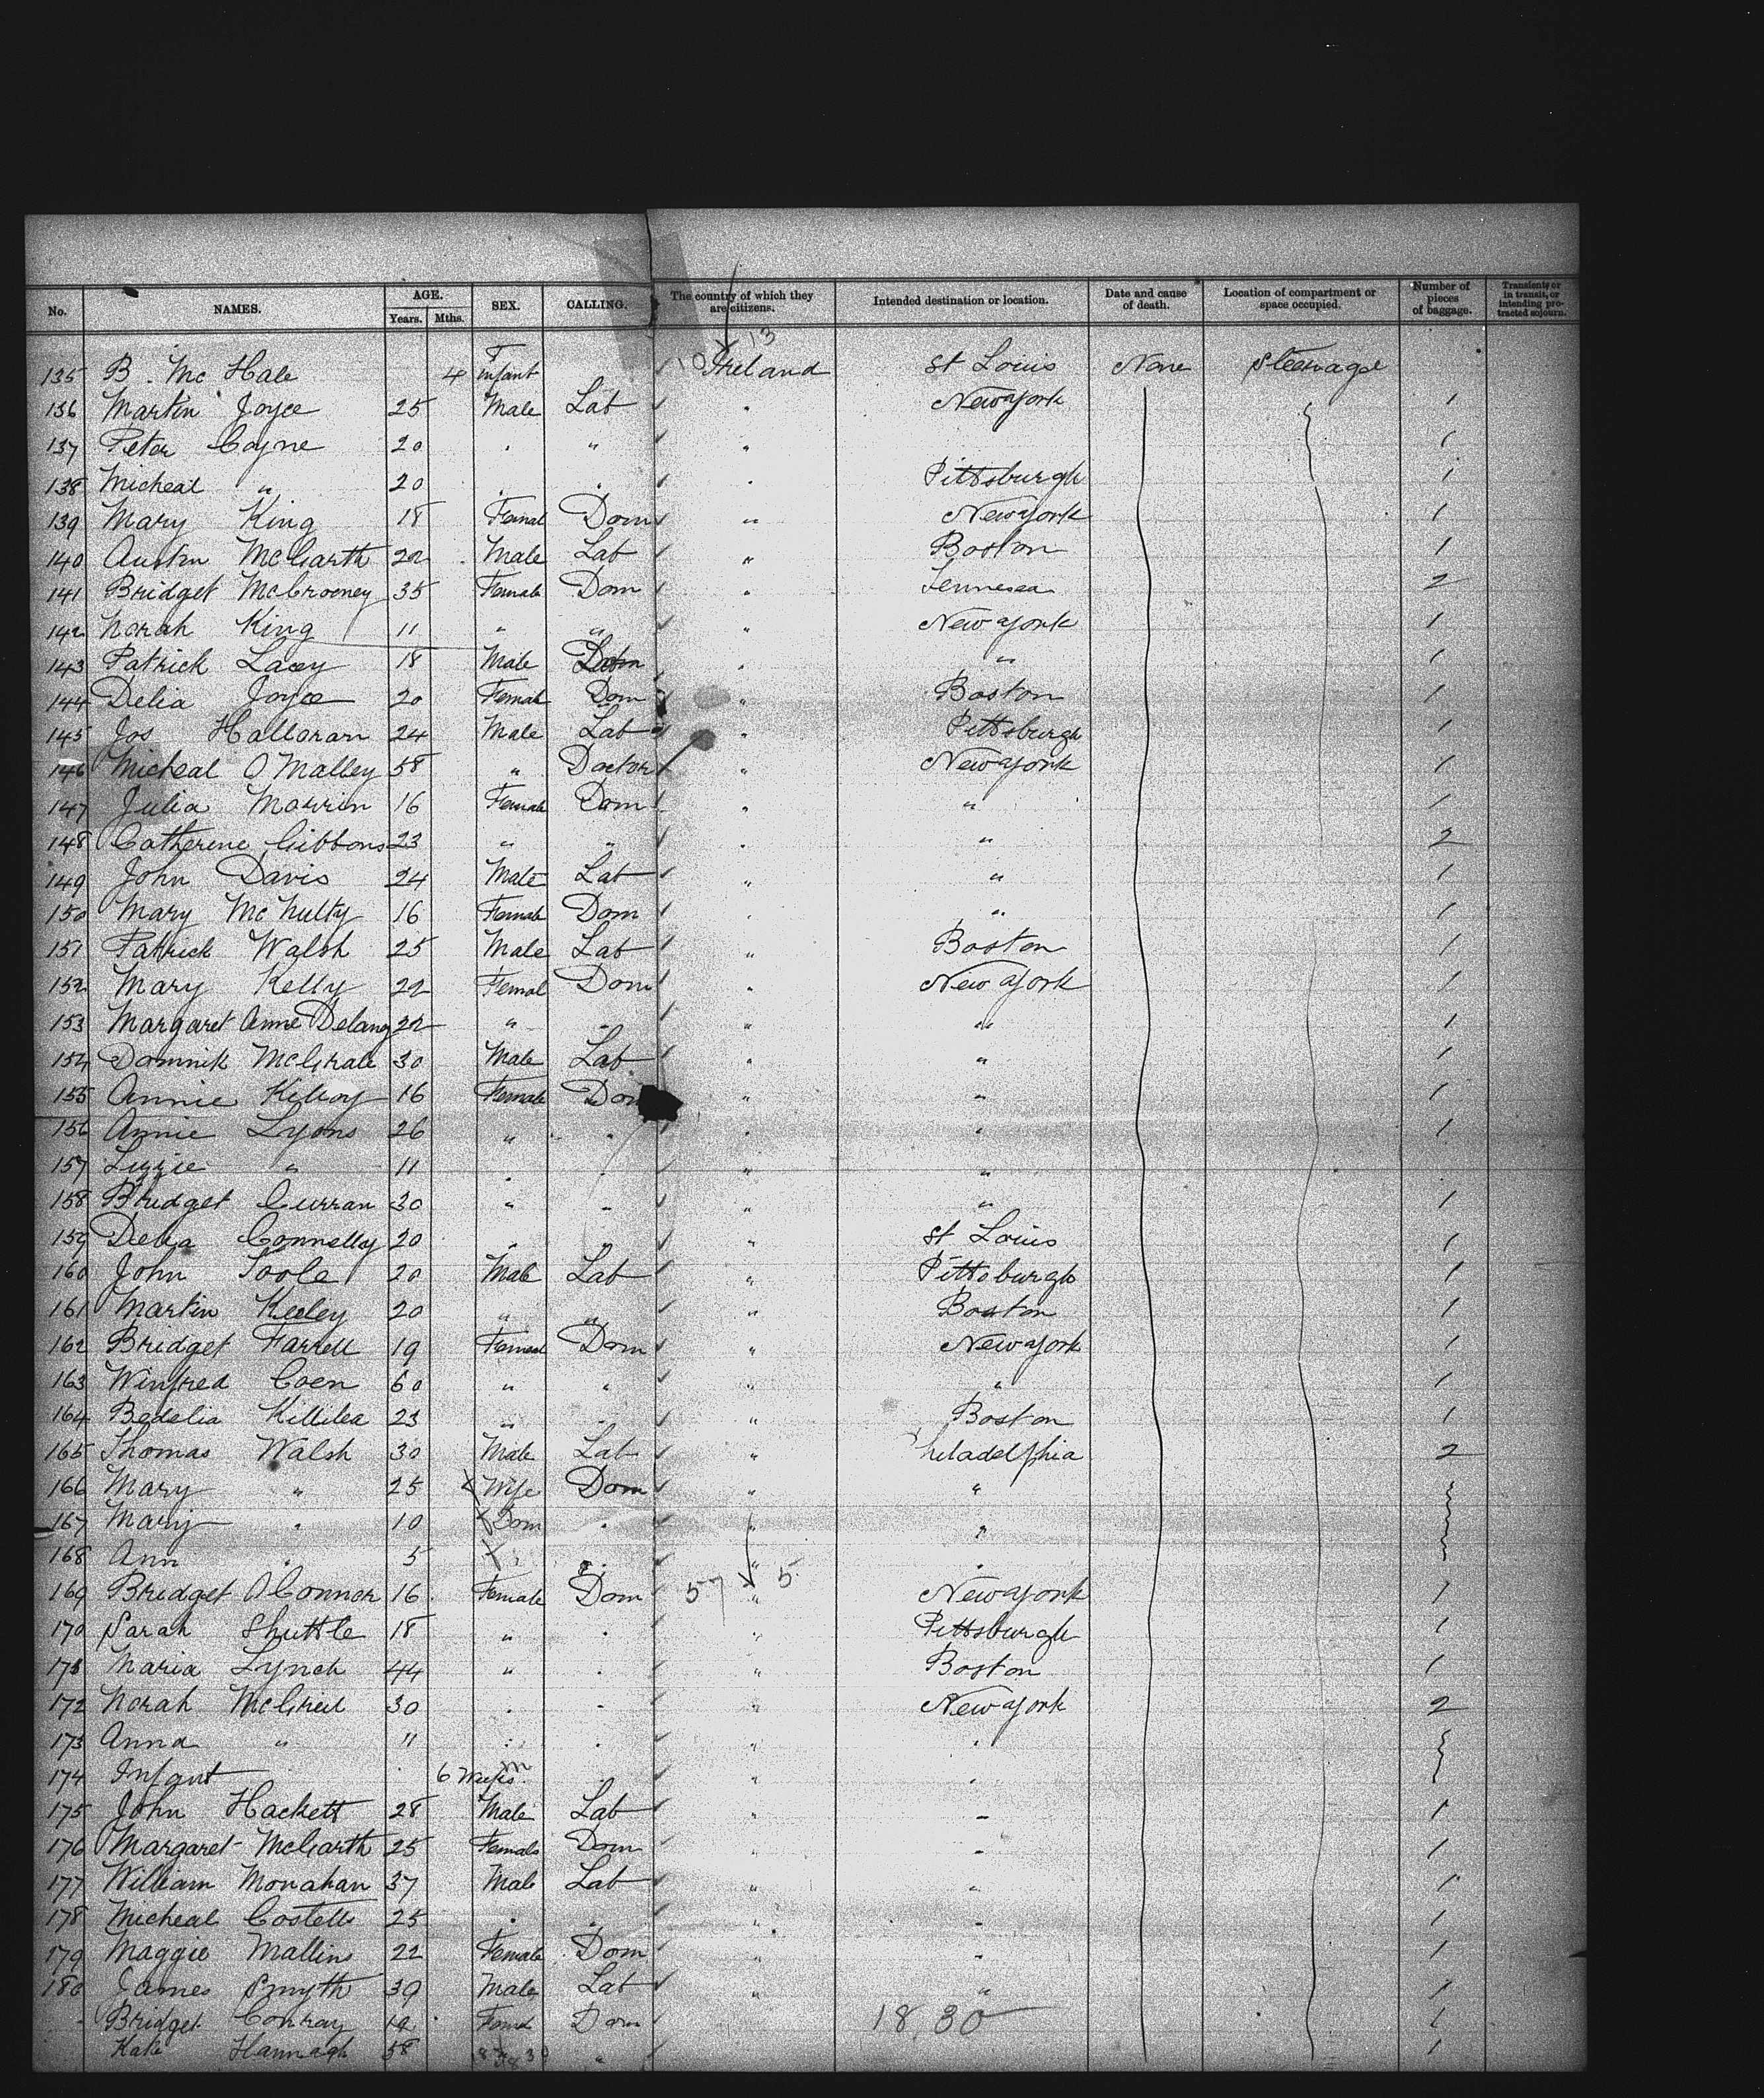 No. NAMES. AGE. Years. Mths. SEX. CALLING. The country of which they are citizens. Intended destination or location. Date and cause of death. Location of compartment or space occupied. Number of pieces of baggage. Transients or in transit, or intending protracted sojourn.
10 13
135 B. Mc Hale 4 F infant Ireland St Louis None Steerage
136 Martin Joyce 25 Male Lab " New York 1
137 Peter Coyne 20 " " " 1
138 Micheal " 20 " " " Pittsburgh 1
139 Mary King 18 Femal Dom " New York 1
140 Austin McGarth 22 Male Lab " Boston 1
141 Bridget McCrooney 35 Female Dom " Tennesea 2
142 Norah King 11 " " " New York 1
143 Patrick Lacey 18 Male " " 1
144 Delia Joyce 20 Female Dom " Boston 1
145 Jos Halloran 24 Male Lab " Pittsburgh 1
146 Micheal O Malley 58 " Doctor " New York 1
147 Julia Morrin 16 Female Dom " " 1
148 Catherine Gibbons 23 " " " " 2
149 John Davis 24 Male Lab " " 1
150 Mary McNulty 16 Female Dom " " 1
151 Patrick Walsh 25 Male Lab " Boston 1
152 Mary Kelly 22 Femal Dom " New York 1
153 Margaret Anne Delany 22 " " " " 1
154 Domnik McGrale 30 Male Lab " " 1
155 Annie Kilroy 16 Female Dom " " 1
156 Annie Lyons 26 " " " " 1
157 Lizzie " 11 " " " "
158 Bridget Curran 30 " " " " 1
159 Delia Connelly 20 " " " St Louis 1
160 John Toole 20 Male Lab " Pittsburgh 1
161 Martin Keeley 20 " " " Boston 1
162 Bridget Farrell 19 Femal Dom " New York 1
163 Winfred Coen 60 " " " " 1
164 Bedelia Killilea 23 " " " Boston 1
165 Thomas Walsh 30 Male Lab " Philadelphia 2
166 Mary " 25 Wife Dom " "
167 Mary " 10 Dom " " "
168 Ann " 5 " " " "
169 Bridget O Connor 16 Female Dom 57 " 5 New York 1
170 Sarah Shuttle 18 " " " Pittsburgh 1
171 Maria Lynch 44 " " " Boston 1
172 Norah McGreil 30 " " " New York 2
173 Anna " 11 " " " "
174 Infant 6 Weeks m " " "
175 John Hackett 28 Male Lab " " 1
176 Margaret McGarth 25 Female Dom " " 1
177 William Monahan 37 Male Lab " " 1
178 Micheal Costello 25 " " " " 1
179 Maggie Mallins 22 Female Dom " " 1
180 James Smyth 39 Male Lab " " 1
Bridget Conray 19 Femal Dom 18.30 1
Kate Hannagh 58 " 1